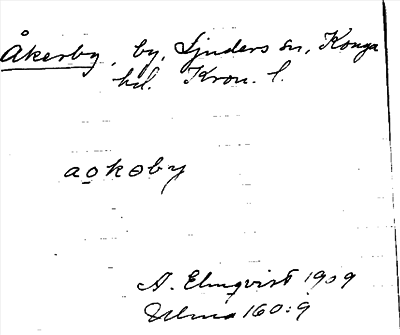 Åkerby, by, Ljuders sn, Konga
hd. Kron. l.
aokoby
A. Elmqvist 1909
Ulma 160:9